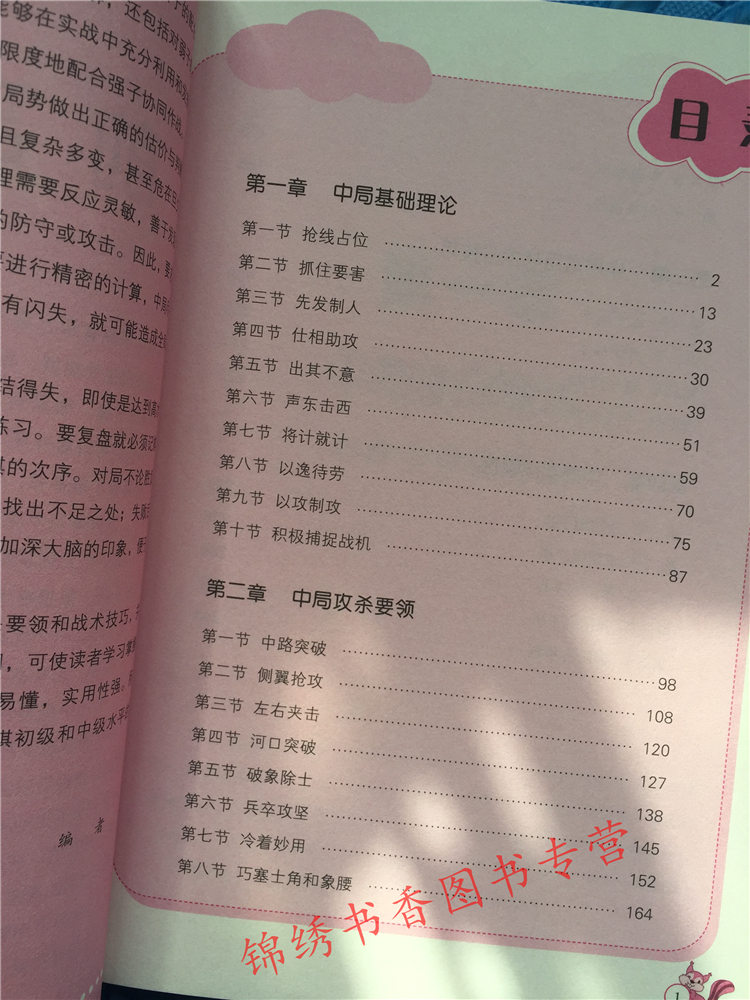 还包括对弱子
能够在实战中充分利用和
限度地配合强子协同作战
局势做出正确的估价与
且复杂多变，甚至危在旦
理需要反应灵敏，善于
的防守或攻击。因此，要
进行精密的计算，中局
有闪失，就可能造成全
结得失，即使是达到高
练习。要复盘就必须记
棋的次序。对局不论胜
找出不足之处；失败
加深大脑的印象，便
要领和战术技巧，
，可使读者学习掌
易懂，实用性强。
棋初级和中级水平的
编 者
目
第一章 中局基础理论
第一节 抢线占位 2
第二节 抓住要害 13
第三节 先发制人 23
第四节 仕相助攻 30
第五节 出其不意 39
第六节 声东击西 51
第七节 将计就计 59
第八节 以逸待劳 70
第九节 以攻制攻 75
第十节 积极捕捉战机 87
第二章 中局攻杀要领
第一节 中路突破 98
第二节 侧翼抢攻 108
第三节 左右夹击 120
第四节 河口突破 127
第五节 破象除士 138
第六节 兵卒攻坚 145
第七节 冷着妙用 152
第八节 巧塞士角和象腰 164
锦绣书香图书专营
1